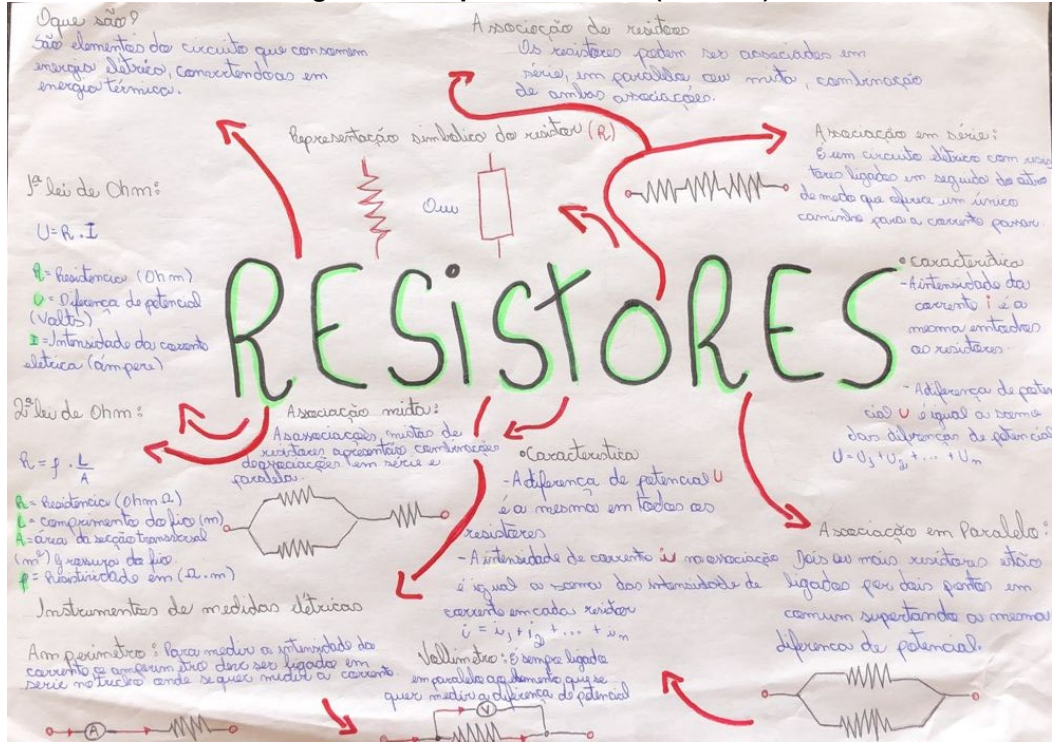 Oque são?
São elementos do circuito que consomem
energia elétrica, convertendoas em
energia térmica.
Associação de resistores
Os resistores podem ser associados em
série, em paralelo ou mista, combinação
de ambas associações.
Representação simbolica do resistor (R)
Ouu
Associação em série:
É um circuito elétrico com resis
tores ligados em seguida do outro
de modo que oferece um único
caminho para a corrente passar.
1ª lei de Ohm:
U=R.I
R= Resistencia (Ohm)
U= Diferença de potencial
(Volts)
I=Intensidade da corrente
elétrica (ámpere)
RESiStORES
caracteristica
-A intensidade da
corrente i é a
mesma em todos
os resistores.
-A diferença de poten
cial U é igual a soma
das diferenças de potencial
U=U1+U2+...+Un
2ª lei de Ohm:
R = ρ . L/A
R= Resistencia (Ohm Ω)
L= comprimento do fio (m)
A=área da secção transversal
(m²) grossura do fio.
ρ= Resistividade em (Ω.m)
Associação mista:
As associações mistas de
resistores apresentão combinações
em série e
paralela.
Caracteristica
-A diferença de potencial U
é a mesma em todos os
resistores
-A intensidade de corrente na associação
é igual a soma das intensidade de
corrente em cada resistor
i = i1 + i2 + ... + in
Associação em Paralelo:
Dois ou mais resistores estão
ligados por dois pontos em
comum suportando as mesma
diferenca de potencial.
Instrumentos de medidas elétricas
Amperimetro: Para medir a intensidade da
corrente o amperimetro deve ser ligado em
serie no trecho onde se quer medir a corrente.
A
Voltimetro: É sempre ligado
em paralelo ao elemento que se
quer medir a diferença de potencial
V